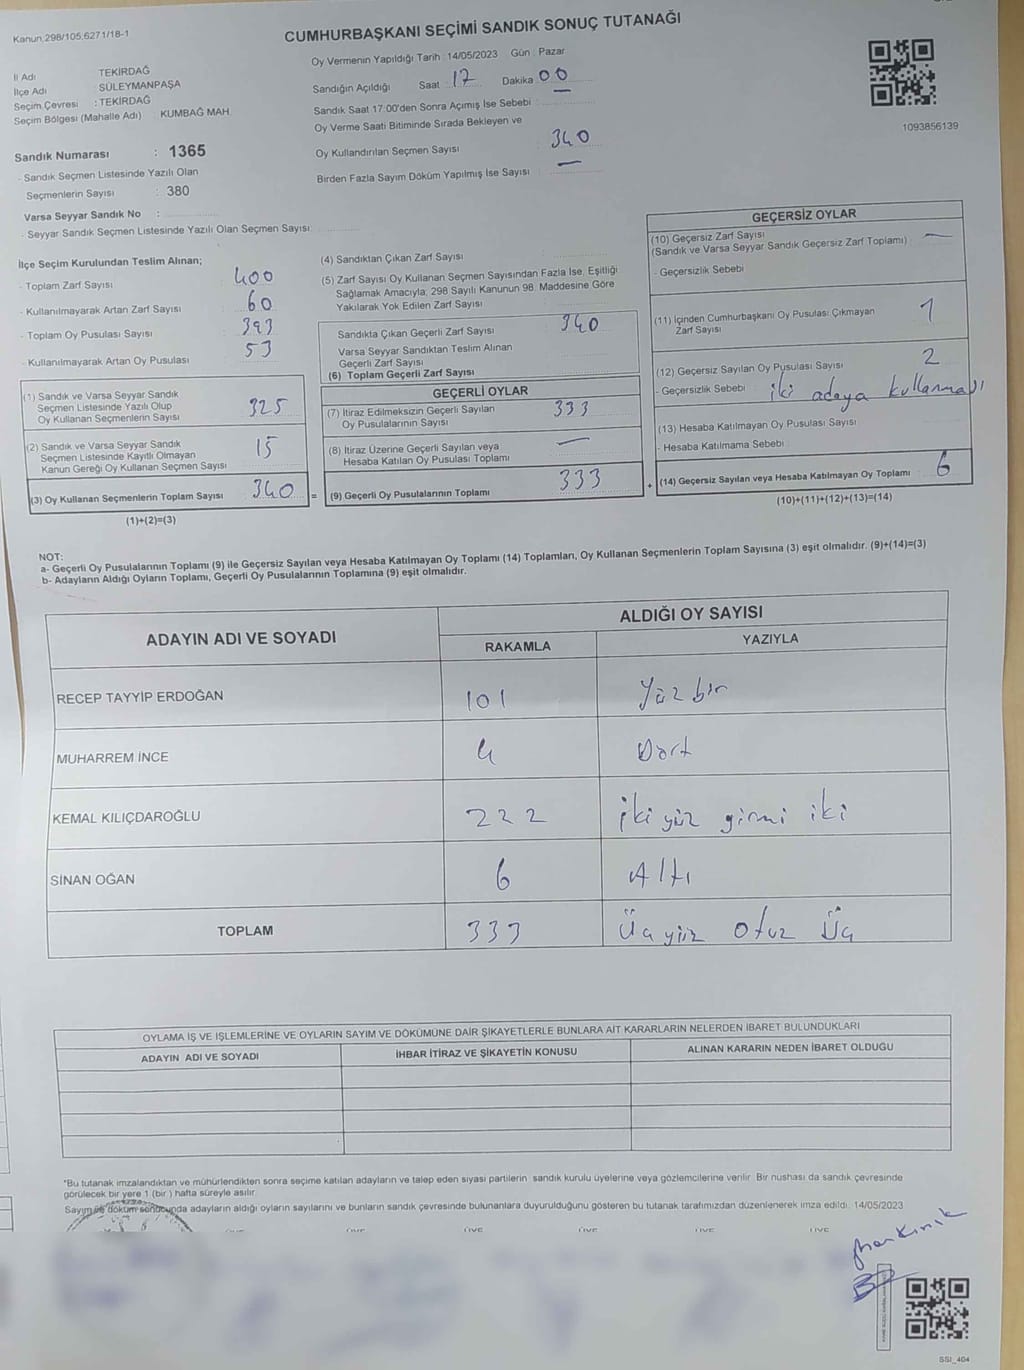 Kanun,298/105,6271/18-1
CUMHURBAŞKANI SEÇİMİ SANDIK SONUÇ TUTANAĞI
İl Adı TEKİRDAĞ
İlçe Adı SÜLEYMANPAŞA
Seçim Çevresi : TEKİRDAĞ
Seçim Bölgesi (Mahalle Adı) KUMBAĞ MAH
Oy Vermenin Yapıldığı Tarih : 14/05/2023 Gün : Pazar
Sandığın Açıldığı Saat 17 Dakika 00
Sandık Saat 17:00'den Sonra Açımış İse Sebebi —
Oy Verme Saati Bitiminde Sırada Bekleyen ve
Oy Kullandırılan Seçmen Sayısı 340
Birden Fazla Sayım Döküm Yapılmış İse Sayısı —
1093856139
Sandık Numarası : 1365
- Sandık Seçmen Listesinde Yazılı Olan
Seçmenlerin Sayısı 380
Varsa Seyyar Sandık No :
- Seyyar Sandık Seçmen Listesinde Yazılı Olan Seçmen Sayısı
İlçe Seçim Kurulundan Teslim Alınan;
- Toplam Zarf Sayısı 400
- Kullanılmayarak Artan Zarf Sayısı 60
- Toplam Oy Pusulası Sayısı 393
- Kullanılmayarak Artan Oy Pusulası 53
(1) Sandık ve Varsa Seyyar Sandık
Seçmen Listesinde Yazılı Olup
Oy Kullanan Seçmenlerin Sayısı 325
(2) Sandık ve Varsa Seyyar Sandık
Seçmen Listesinde Kayıtlı Olmayan
Kanun Gereği Oy Kullanan Seçmen Sayısı 15
(3) Oy Kullanan Seçmenlerin Toplam Sayısı 340 =
(1)+(2)=(3)
(4) Sandıktan Çıkan Zarf Sayısı
(5) Zarf Sayısı Oy Kullanan Seçmen Sayısından Fazla İse, Eşitliği
Sağlamak Amacıyla, 298 Sayılı Kanunun 98. Maddesine Göre
Yakılarak Yok Edilen Zarf Sayısı
Sandıkta Çıkan Geçerli Zarf Sayısı 340
Varsa Seyyar Sandıktan Teslim Alınan
Geçerli Zarf Sayısı
(6) Toplam Geçerli Zarf Sayısı
GEÇERLİ OYLAR
(7) İtiraz Edilmeksizin Geçerli Sayılan
Oy Pusulalarının Sayısı 333
(8) İtiraz Üzerine Geçerli Sayılan veya
Hesaba Katılan Oy Pusulası Toplamı —
(9) Geçerli Oy Pusulalarının Toplamı 333 +
GEÇERSİZ OYLAR
(10) Geçersiz Zarf Sayısı
(Sandık ve Varsa Seyyar Sandık Geçersiz Zarf Toplamı) —
- Geçersizlik Sebebi
(11) İçinden Cumhurbaşkanı Oy Pusulası Çıkmayan
Zarf Sayısı 1
(12) Geçersiz Sayılan Oy Pusulası Sayısı 2
- Geçersizlik Sebebi iki adaya kullanması
(13) Hesaba Katılmayan Oy Pusulası Sayısı
- Hesaba Katılmama Sebebi
(14) Geçersiz Sayılan veya Hesaba Katılmayan Oy Toplamı 6
(10)+(11)+(12)+(13)=(14)
NOT:
a- Geçerli Oy Pusulalarının Toplamı (9) ile Geçersiz Sayılan veya Hesaba Katılmayan Oy Toplamı (14) Toplamları, Oy Kullanan Seçmenlerin Toplam Sayısına (3) eşit olmalıdır. (9)+(14)=(3)
b- Adayların Aldığı Oyların Toplamı, Geçerli Oy Pusulalarının Toplamına (9) eşit olmalıdır.
ADAYIN ADI VE SOYADI ALDIĞI OY SAYISI
RAKAMLA YAZIYLA
RECEP TAYYİP ERDOĞAN 101 Yüz bir
MUHARREM İNCE 4 Dört
KEMAL KILIÇDAROĞLU 222 iki yüz girmi iki
SİNAN OĞAN 6 Altı
TOPLAM 333 Üç yüz otuz Üç
OYLAMA İŞ VE İŞLEMLERİNE VE OYLARIN SAYIM VE DÖKÜMÜNE DAİR ŞİKAYETLERLE BUNLARA AİT KARARLARIN NELERDEN İBARET BULUNDUKLARI
ADAYIN ADI VE SOYADI İHBAR İTİRAZ VE ŞİKAYETİN KONUSU ALINAN KARARIN NEDEN İBARET OLDUĞU
*Bu tutanak imzalandıktan ve mühürlendikten sonra seçime katılan adayların ve talep eden siyasi partilerin sandık kurulu üyelerine veya gözlemcilerine verilir. Bir nushası da sandık çevresinde
görülecek bir yere 1 (bir ) hafta süreyle asılır.
Sayım ve döküm sonucunda adayların aldığı oyların sayılarını ve bunların sandık çevresinde bulunanlara duyurulduğunu gösteren bu tutanak tarafımızdan düzenlenerek imza edildi. 14/05/2023
SSI_404